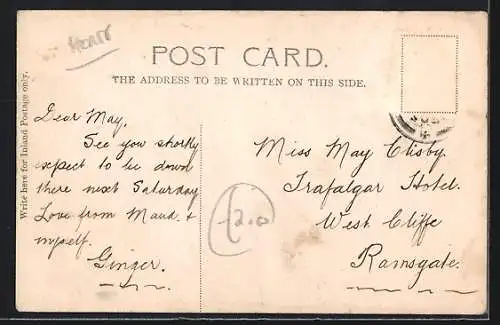 POST CARD.
THE ADDRESS TO BE WRITTEN ON THIS SIDE.
Write here for Inland Postage only.
Dear May,
See you shortly
expect to be down
there next Saturday
Love from Maud &
myself.
Ginger.
Miss May Clisby.
Trafalgar Hotel.
West Cliffe
Ramsgate.